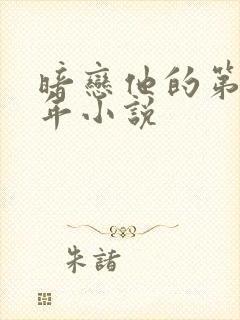 暗戀他的第
年小說
朱諸